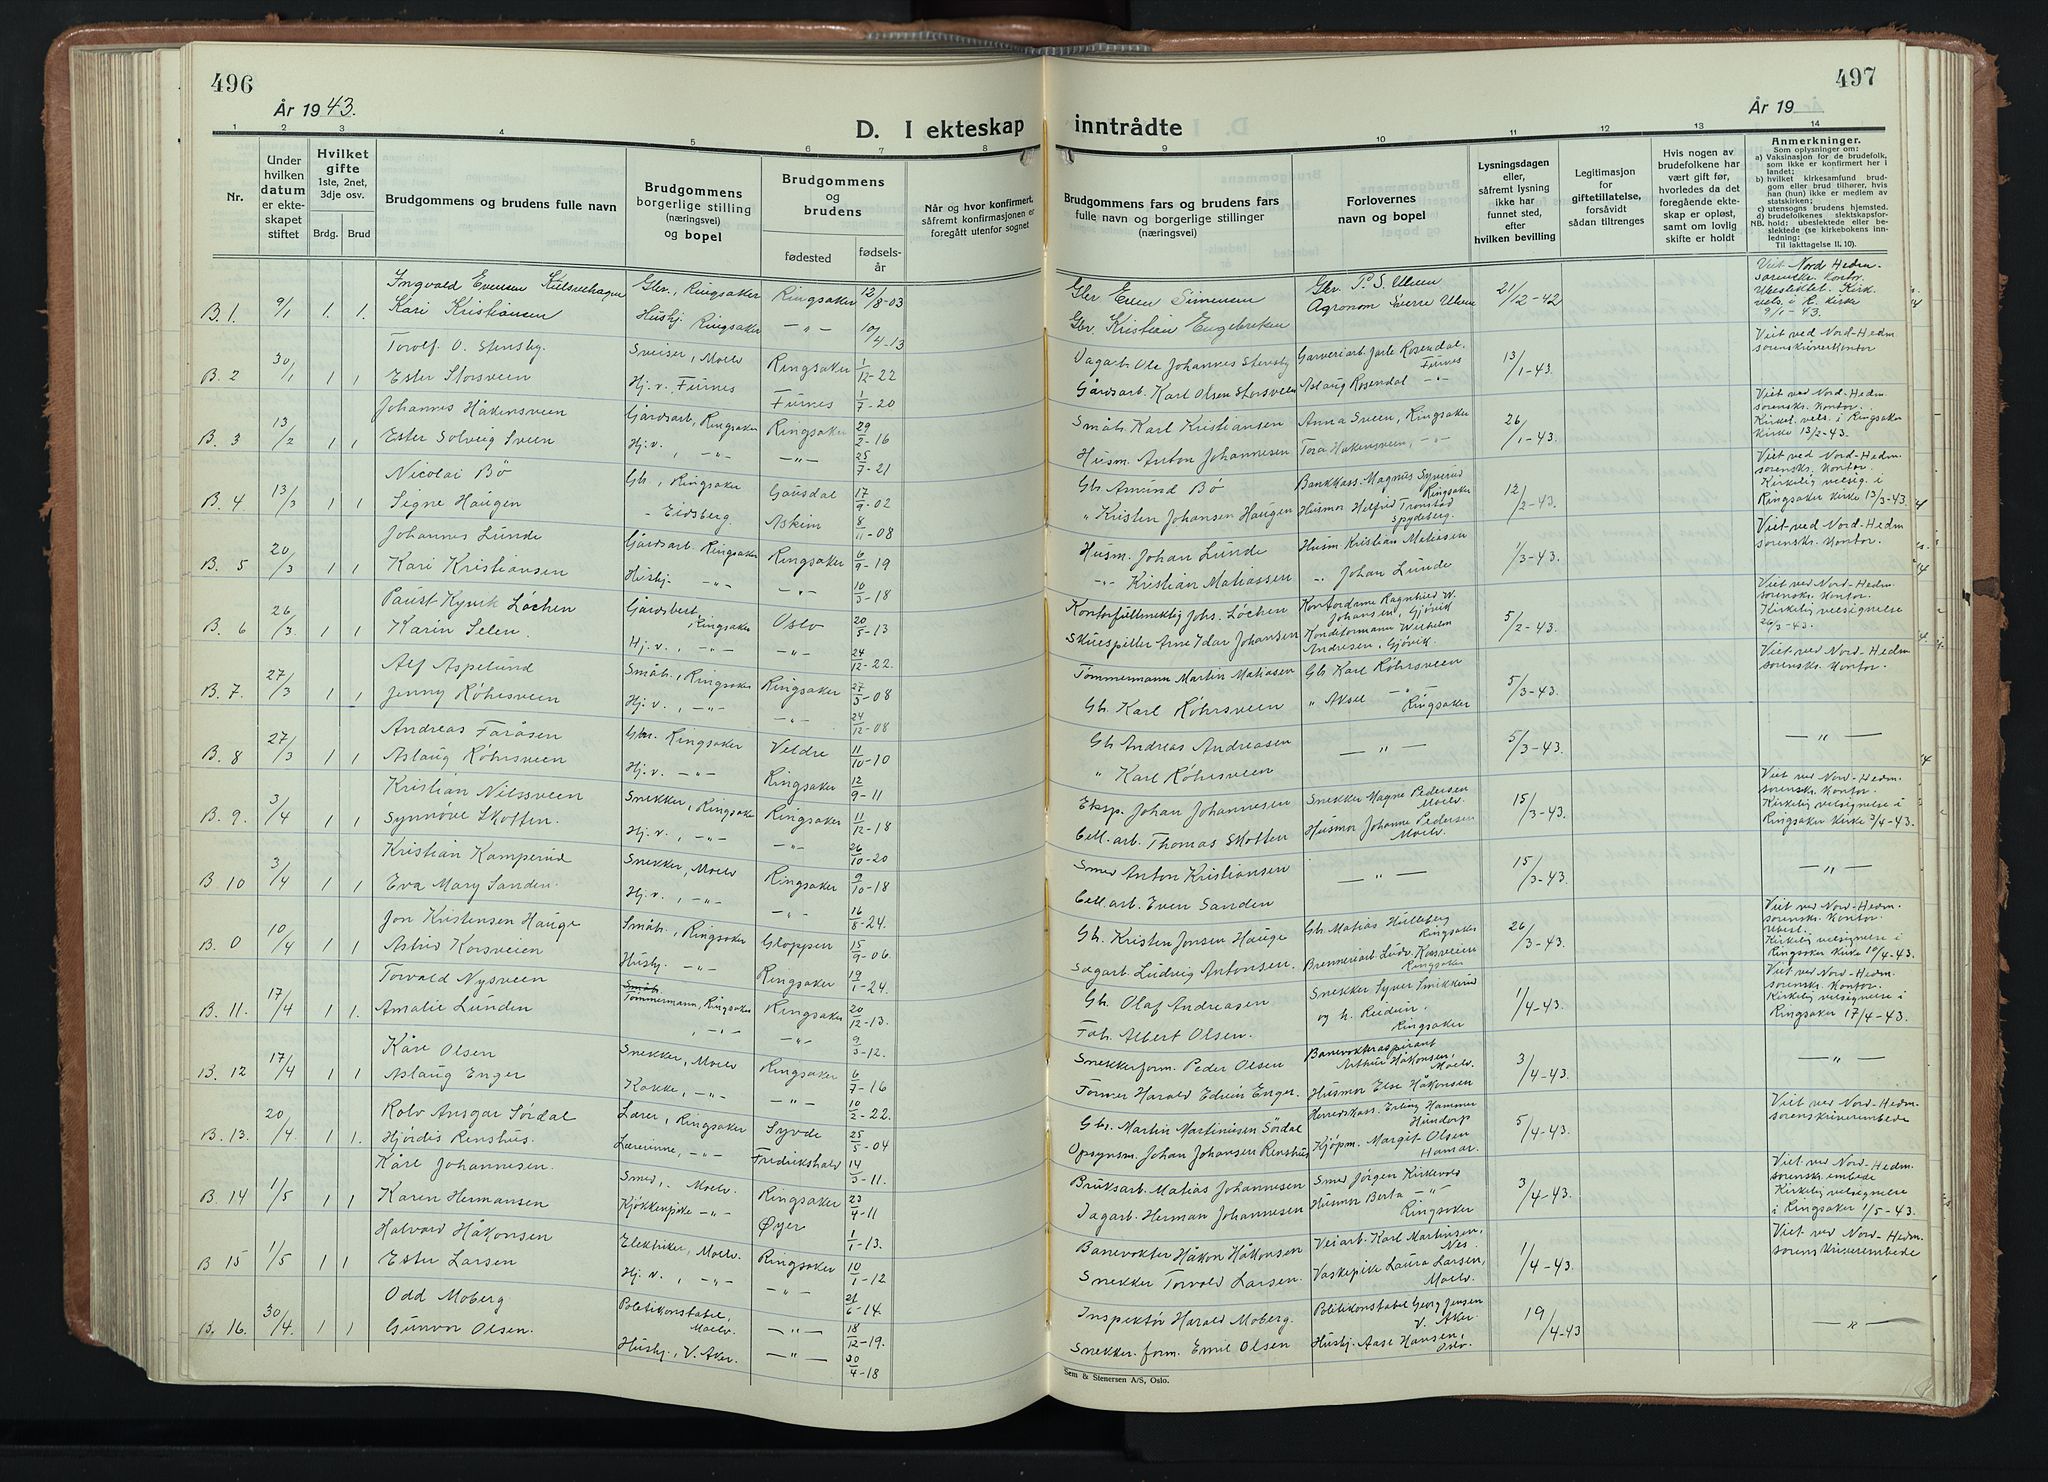 496
År 1943.
D. I ekteskap
1 2 3 4 5 6 7 8
Nr.
Under hvilken datum er ekteskapet stiftet
Hvilket gifte 1ste, 2net, 3dje osv.
Brdg. Brud
Brudgommens og brudens fulle navn
Brudgommens borgerlige stilling (næringsvei) og bopel
Brudgommens og brudens
fødested
fødselsår
Når og hvor konfirmert, såfremt konfirmasjonen er foregått utenfor sognet
B. 1. 9/1 1. 1. Ingvald Evensen Gbr., Ringsaker Ringsaker 12/8-03
Kari Kristiansen Hushj. Ringsaker —"— 10/4-13
B. 2 30/1 1 1 Torolf O. Stensby. Sveiser, Moelv Ringsaker 1/12-22
Ester Storsveen Hj. v. Furnes Furnes 1/7-20
B. 3 13/2 1 1 Johannes Håkensveen Gårdsarb., Ringsaker Ringsaker 29/2-16
Ester Solveig Sveen Hj. v. , —"— —"— 25/7-21
B. 4 13/3 1 1 Nicolai Bö Gb., Ringsaker Gausdal 17/9-02
Signe Haugen - Eidsberg Askim 8/11-08
B. 5 20/3 1 1 Johannes Lunde Gårdsarb. Ringsaker Ringsaker 6/9-19
Kari Kristiansen Hushj. —"— —"— 10/3-18
B. 6 26/3 1 1 Løchen Gårdsbest., Ringsaker Oslo 20/5-13
Karin Selen. Hj. v. , —"— —"— 24/12-22.
B. 7. 27/3 1 1 Alf Aspelund Småb., Ringsaker Ringsaker 27/3-08
Jenny Röhrsveen Hj. v. , —"— —"— 24/12-08
B. 8 27/3 1 1 Andreas Faråsen Gbr. Ringsaker Veldre 11/10-10
Aslaug Röhrsveen Hj. v. —"— Ringsaker 12/9-11
B. 9. 3/4 1 1 Kristian Nilssveen Snekker, Ringsaker Ringsaker 11/12-18
Synnöve Skotten. Hj. v. , —"— —"— 26/10-20
B. 10 3/4 1 1 Kristian Kamperud Snekker, Moelv Ringsaker 9/10-18
Eva Mary Sanden. Hj. v. , —"— —"— 16/8-24.
B. 0 10/4 1 1 Jon Kristensen Hauge Småb., Ringsaker Gloppen 15/9-06.
Astrid Korsveien Hushj. —"— Ringsaker 19/1-24.
B. 11. 17/4 1 1. Torvald Nysveen Småb. Tömmermann, Ringsaker Ringsaker 20/12-13.
Amalie Lunden , —"— —"— 9/3-12.
B. 12 17/4 1 1 Kåre Olsen Snekker, Moelv Ringsaker 6/7-16
Aslaug Enger Kokke, —"— —"— 10/2-22.
B. 13. 20/4. 1 1. Rolv Ansgar Sørdal Lærer, Ringsaker Syvde 25/5-04
Hjördis Renshus. Lærerinne, —"— Fredrikshald 14/3-11.
B. 14 1/5 1 1 Kåre Johannesen. Smed, Moelv. Ringsaker 23/4-11
Karen Hermansen Kjökkenpike —"— Øyer 1/1-13.
B. 15 1/5 1 1 Halvard Håkonsen Elektriker, Moelv. Ringsaker 10/1-12
Ester Larsen Hj. v. , —"— —"— 21/6-14.
B. 16. 30/4. 1 1 Odd Moberg Politikonstabel, Moelv. —"— 18/12-19.
Gunvor Olsen. Hushj., V. Aker. —"— 30/4-18
497
År 19
inntrådte
9 10 11 12 13 14
Brudgommens fars og brudens fars fulle navn og borgerlige stillinger (næringsvei)
Forlovernes navn og bopel
Lysningsdagen eller, såfremt lysning ikke har funnet sted, efter hvilken bevilling
Legitimasjon for giftetillatelse, forsåvidt sådan tiltrenges
Hvis nogen av brudefolkene har vært gift før, hvorledes da det foregående ekteskap er opløst, samt om lovlig skifte er holdt
Anmerkninger.
Som oplysninger om:
a) Vaksinasjon for de brudefolk, som ikke er konfirmert her i landet;
b) hvilket kirkesamfund brudgom eller brud tilhører, hvis han (hun) ikke er medlem av statskirken;
c) utensogns brudens hjemsted.
d) brudefolkenes slektskapsforhold: ubeslektede eller beslektede (se kirkebokens innledning:
NB. Til iakttagelse II, 10).
Gbr Even Simensen Gbr. P. S. Ulven 21/12-42 Viet Nord Hedm. sorenskr. kontor. Ubeslektet. Kirk. vels. i R. kirke 9/1-43.
Gbr. Kristian Engebretsen Agronom Sverre Ulven
Vagarb. Ole Johannes Stensby Garveriarb. Jarle Rosendal, Furnes 13/1-43. Viet ved Nord-Hedm. sorenskriverkontor
Gårdsarb. Karl Olsen Storsveen Aslaug Rosendal —"—
Småb. Karl Kristiansen Anna Sveen, Ringsaker 26/1-43. Viet ved Nord-Hedm. sorenskr. kontor. Kirkel. vels. i Ringsaker Kirke 13/2-43.
Husm. Anton Johannesen Tora Håkensveen, —"—
Gb. Amund Bö Bankkass. Magnus Syverud Ringsaker 12/2-43. Viet ved Nord-Hedm. sorenskr. kontor. Kirkelig velsig. i Ringsaker Kirke 13/3-43.
" Kristen Johansen Haugen Husmor Helfrid Tronstad Spydeberg.
Husm. Johan Lunde Husm. Kristian Matiasen 1/3-43. Viet ved Nord-Hedm sorenskr. Kontor.
—"— Kristian Matiassen " Johan Lunde
Kontorfullmektig Johs. Løchen Kontordame Ragnhild W. Johansen, Gjövik 5/2-43. Viet ved Nord-Hedm sorenskr. Kontor. Kirkelig velsignelse 26/3-43.
Skuespiller Arne Idar Johansen Konditormann Wilhelm Andresen, Gjövik.
Tömmermann Martin Matiasen Gb Karl Röhrsveen 5/3-43. Viet ved Nord-Hedm sorenskr. Kontor.
Gb. Karl Röhrsveen " Aksel —"— Ringsaker
Gb Andreas Andreasen —"— 5/3-43. —"—
" Karl Röhrsveen
Eksp. Johan Johannesen Snekker Magne Pedersen Moelv. 15/3-43. Viet ved Nord-Hedm. sorenskr. Kontor. Kirkelig velsignelse i Ringsaker Kirke 3/4-43.
Cell. arb. Thomas Skotten Husmor Johanne Pedersen Moelv.
Smed Anton Kristiansen —"— 15/3-43. —"—
Cell. arb. Even Sanden
Gb. Kristen Jonsen Hauge Gb. Matias Hulleberg Ringsaker 26/3-43. Viet ved Nord-Hedm. sorenskr. Kontor. ubesl. Kirkelig velsignelse i Ringsaker Kirke 10/4-43.
Sagarb. Ludvig Antonsen. Brenneriarb. Ludv. Korsveien Ringsaker
Gb. Olaf Andreasen Snekker Syver Smikkerud 1/4-43. Viet ved Nord-Hedm. sorenskr. Kontor. Kirkelig velsignelse i Ringsaker 17/4-43.
Fab. Albert Olsen. og h. Reidun. Ringsaker
Snekkerform. Peder Olsen Banevokteraspirant Arthur Håkonsen, Moelv. 3/4-43. —"—
Former Harald Edvin Enger. Husmor Else Håkonsen
Gbr. Martin Martinusen Sördal Herredskass. Erling Hammer Hundorp 5/4-43. Viet ved Nord-Hedm sorenskriverembede
Opsynsm. Johan Johansen Renshus Kjöpm. Margit Olsen Hamar.
Bruksarb. Matias Johannesen Smed Jörgen Kirkevold 3/4-43. Viet ved Nord-Hedm. sorenskr. embede Kirkelig velsignelse i Ringsaker 1/5-43.
Jagarb. Herman Johannesen Husmor Berta —"— Ringsaker
Banevokter Håkon Håkonsen Veiarb. Karl Martinsen, Nes. 1/4-43. Viet ved Nord-Hedm. sorenskriverembede
Snekker Torvald Larsen. Vaskepike Laura Larsen, Moelv.
Inspektør Harald Moberg. Politikonstabel Georg Jensen V. Aker 19/4-43 —"—
Snekker. form. Emil Olsen Hushj. Aase Hansen, Oslo.
Sem & Stenersen A/S, Oslo.